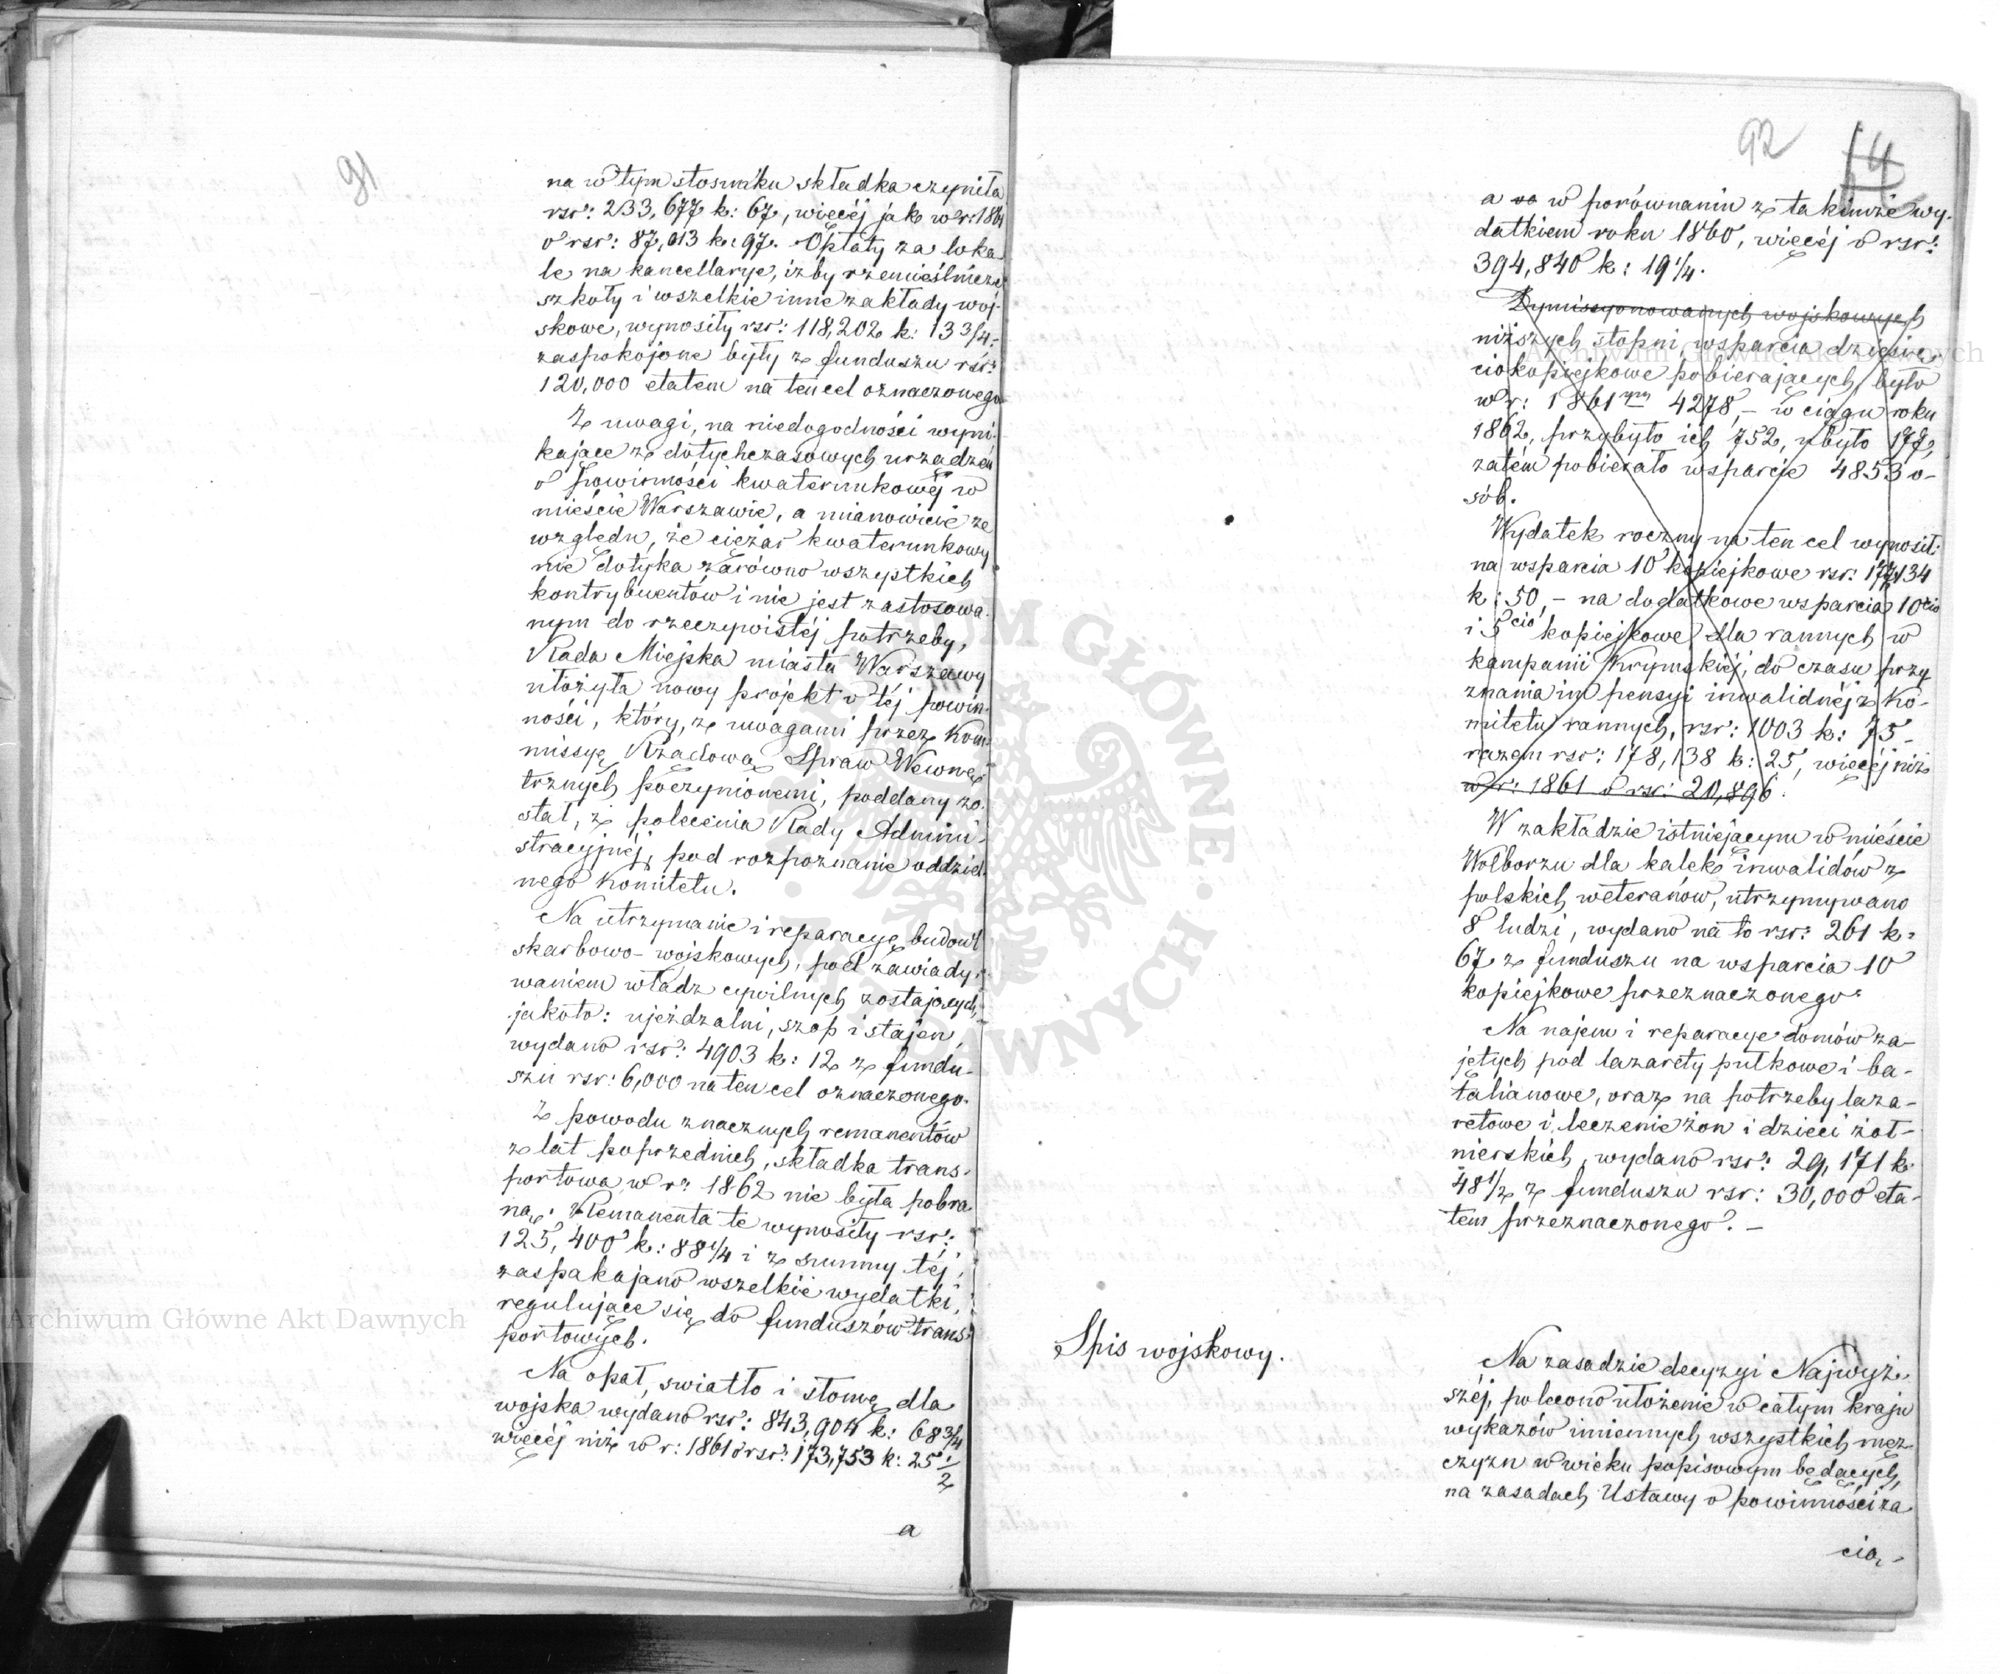 91
na w tym stosunku składka czyniła
rsr: 233,677 k: 67, więcéj jak w r: 1861
o rsr: 87,013 k: 97. Opłaty za loka
le na kancellarye, izby rzemieślnicze
szkoły i wszelkie inne zakłady woj-
skowe, wynosiły rsr: 118,202 k: 13 3/4.
zaspokojone były z funduszu rsr:
120,000 etatem na ten cel oznaczonego
Z uwagi, na niedogodności wyni-
kające z dotychczasowych urządzeń
o powinności kwaterunkowéj w
mieście Warszawie, a mianowicie ze
względu, że ciężar kwaterunkowy
nie dotyka zarówno wszystkich
kontrybuentów i nie jest zastosowa-
nym do rzeczywistéj potrzeby,
Rada Miejska miasta Warszawy
ułożyła nowy projekt o téj powin-
ności, który, z uwagami przez Kom-
missyę Rządową Spraw Wewnę
trznych poczynionemi, poddany zo-
stał, z polecenia Rady Admini-
stracyjnéj, pod rozpoznanie oddziel-
nego Komitetu.
Na utrzymanie i reparacyę budowl
skarbowo-wojskowych, pod zawiady-
waniem władz cywilnych zostających,
jakoto: ujeżdzalni, szop i stajen,
wydano rsr: 4903 k: 12 z fundu-
szu rsr: 6,000 na ten cel oznaczonego.
Z powodu znacznych remanentów
z lat poprzednich, składka trans-
portowa w r: 1862 nie była pobra
ną. Remanenta te wynosiły rsr:
125,400 k: 88 1/4 i z summy téj,
zaspakajano wszelkie wydatki,
regulujące się do funduszów trans-
portowych.
Na opał, swiatło i słomę dla
wojska wydano rsr: 843,904 k: 68 3/4
więcéj niż w r: 1861 o rsr: 173,753 k: 25 1/2
a
92 14
a w porównaniu z takimże wy-
datkiem roku 1860, więcéj o rsr:
394,840 k: 19 1/4.
Dymissyonowanych wojskowych
niższych stopni, wsparcia dziesię
ciokopiejkowe pobierających było
w r: 1861ym 4278, – w ciągu roku
1862, przybyło ich 752, ubyło 177,
zatém pobierało wsparcie 4853 o-
sób.
Wydatek roczny na ten cel wynosił:
na wsparcia 10 kopiejkowe rsr: 177,134
k: 50, – na dodatkowe wsparcia 10cio
i 5cio kopiejkowe dla rannych w
kampanii Krymskiéj, do czasu przy
znania im pensyi inwalidnéj z Ko-
mitetu rannych, rsr: 1003 k: 75 –
razem rsr: 178,138 k: 25, więcéj niż
w r: 1861 o rsr: 20,896.
W zakładzie istniejącym w mieście
Wolborzu dla kalek inwalidów z
polskich weteranów, utrzymywano
8 ludzi, wydano na to rsr: 261 k:
67 z funduszu na wsparcia 10
kopiejkowe przeznaczonego.
Na najem i reparacye domów za-
jętych pod lazarety pułkowe i ba-
talianowe, oraz na potrzeby laza-
retowe i leczenie żon i dzieci żoł-
nierskich, wydano rsr: 29,171 k:
48 1/2 z funduszu rsr: 30,000 eta-
tem przeznaczonego. –
Spis wojskowy.
Na zasadzie decyzyi Najwyż-
széj, polecono ułożenie w całym kraju
wykazów imiennych wszystkich męz
czyzn w wieku popisowym będących,
na zasadach Ustawy o powinności za
cią-
Archiwum Główne Akt Dawnych
Archiwum Główne Akt Dawnych
ARCHIWUM GŁÓWNE AKT DAWNYCH